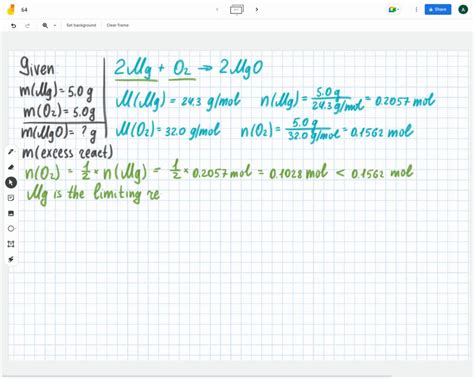 64
Share
A
Set background
Clear frame
Given
m(Mg)=5.0g
m(O2)=5.0g
m(MgO)=? g
m(excess react)
2Mg + O2 → 2MgO
M(Mg) = 24.3 g/mol n(Mg)= 5.0 g / 24.3 g/mol = 0.2057 mol
M(O2) = 32.0 g/mol n(O2)= 5.0 g / 32.0 g/mol = 0.1562 mol
n(O2) = 1/2 × n(Mg) = 1/2 × 0.2057 mol = 0.1028 mol < 0.1562 mol
Mg is the limiting re